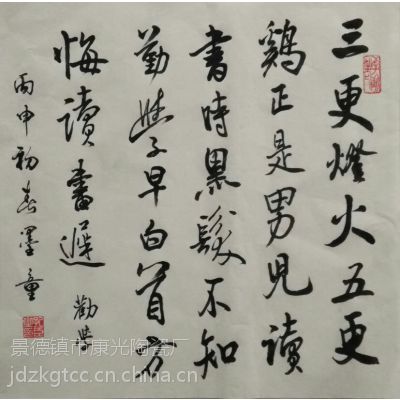 三更燈火五更
鷄正是男兒讀
書時黑髮不知
勤學早白首方
悔讀書遲 勸學
丙申初春墨童
景德镇市康光陶瓷厂
jdzkgtcc.cn.china.cn